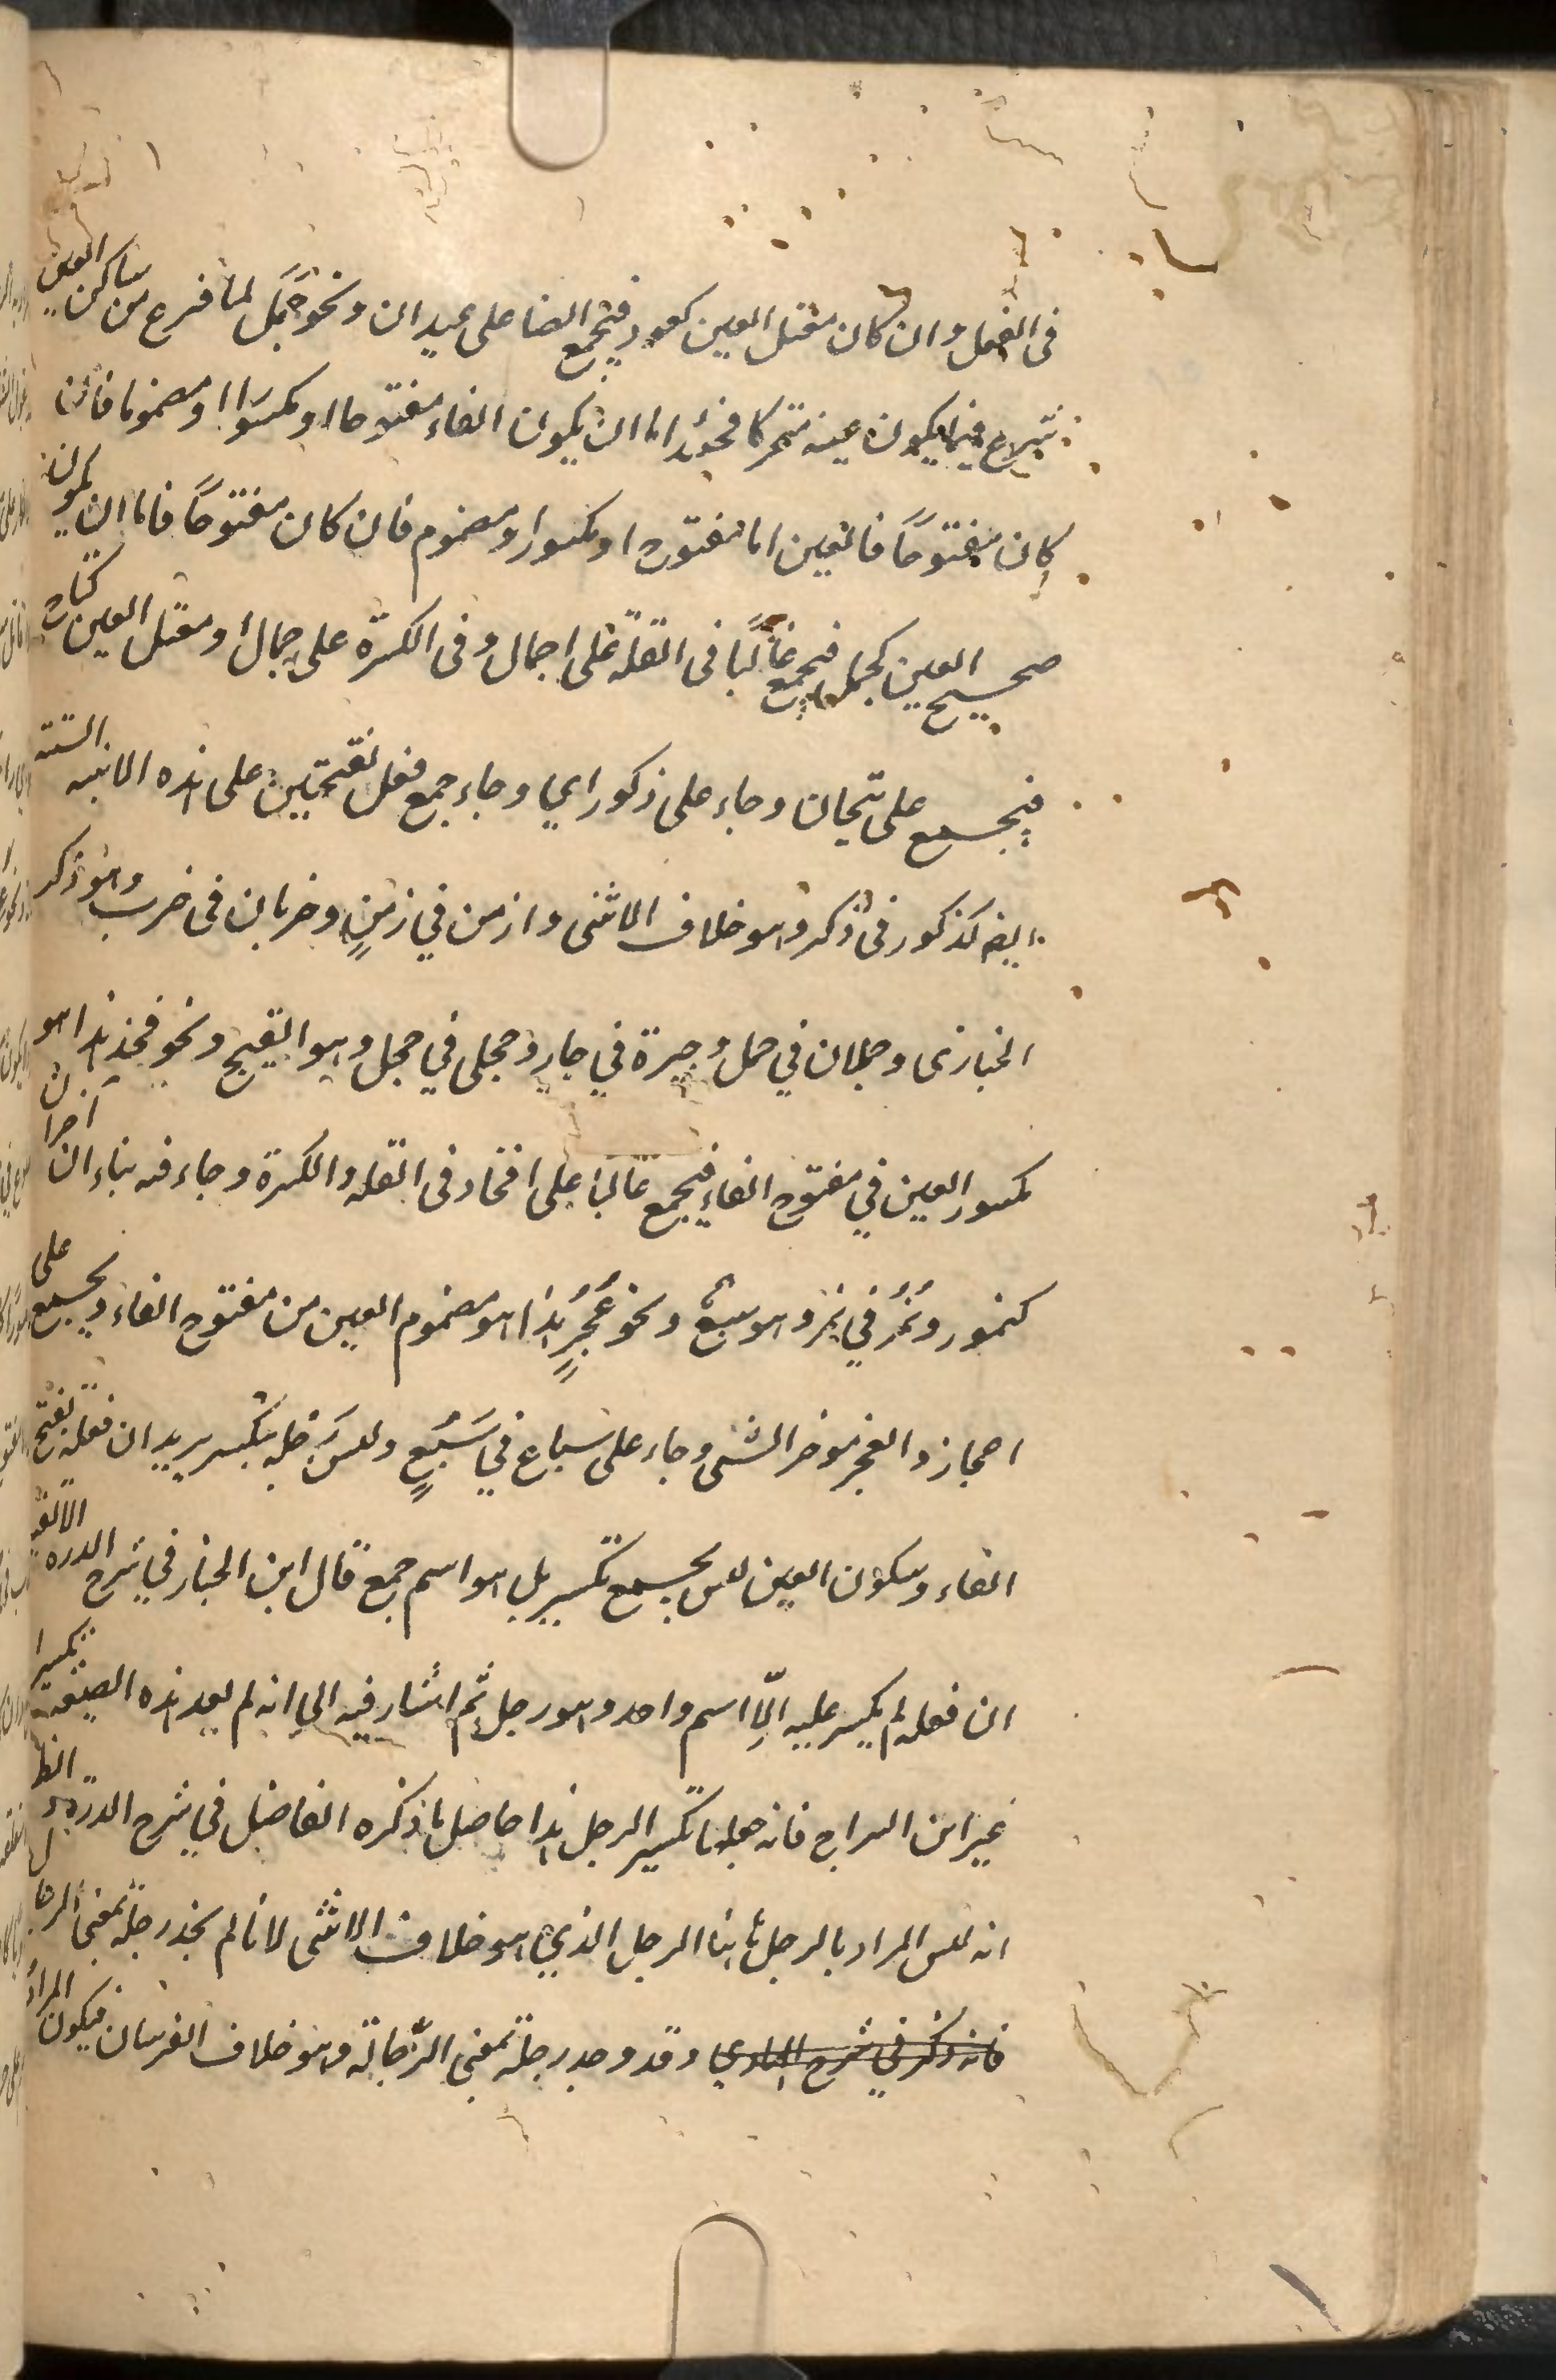 فى الفعل وان كان معتل العين كعود فيجمع ايضا على عيدان ونحو جَمَل لما فرغ من ساكن العين
شرع فيما يكون عينه متحركا فحينئذ اما ان يكون الفاء مفتوحا او مكسورا او مضموما فان
كان مفتوحًا فالعين اما مفتوح او مكسور او مضموم فان كان مفتوحًا فاما ان يكون
صحيح العين كجمل فيجمع غالبًا فى القلة على اجمال وفى الكثرة على جمال او معتل العين كتاج
فيجمع على تيجان وجاء على ذكور اي وجاء جمع فعل بفتحتين على هذه الابنية الستة
ايضا كذكور فى ذكر وهو خلاف الانثى وازمن في زمنٍ وخربان فى خرب وهو ذكر
الحبارى وحملان في حمل وجيرة في جار وحجلى في حجل وهو القبج ونحو فخذ هذا هو
مكسور العين في مفتوح الفاء فيجمع غالبًا على افخاذ فى القلة والكثرة وجاء فيه بناءان آخران
كنمور ونُمُر في نمر وهو سبع ونحو عَجُزٍ هذا هو مضموم العين من مفتوح الفاء ويجمع على
اعجاز والعجز مؤخر الشئ وجاء على سباع في سَبُعٍ وليس رَجْلة بتكسير يريد ان فعلة بفتح
الفاء وسكون العين ليس بجمع تكسير بل هو اسم جمع قال ابن الخباز في شرح الدرة الالفية
ان فعلة لم يكسر عليه الّا اسم واحد وهو رجل ثم اشار فيه الى انه لم يعد هذه الصيغة تكسيرا
غير ابن السراج فانه جعلها تكسير الرجل هذا حاصل ما ذكره الفاضل في شرح الدرة والظ
انه ليس المراد بالرجل هاهنا الرجل الذي هو خلاف الانثى لانا لم نجد رجلة بمعنى الرجال
فانه ذكر في شرح الهادي وقد وجد رجلة بمعنى الرّجالة وهو خلاف الفرسان فيكون المراد